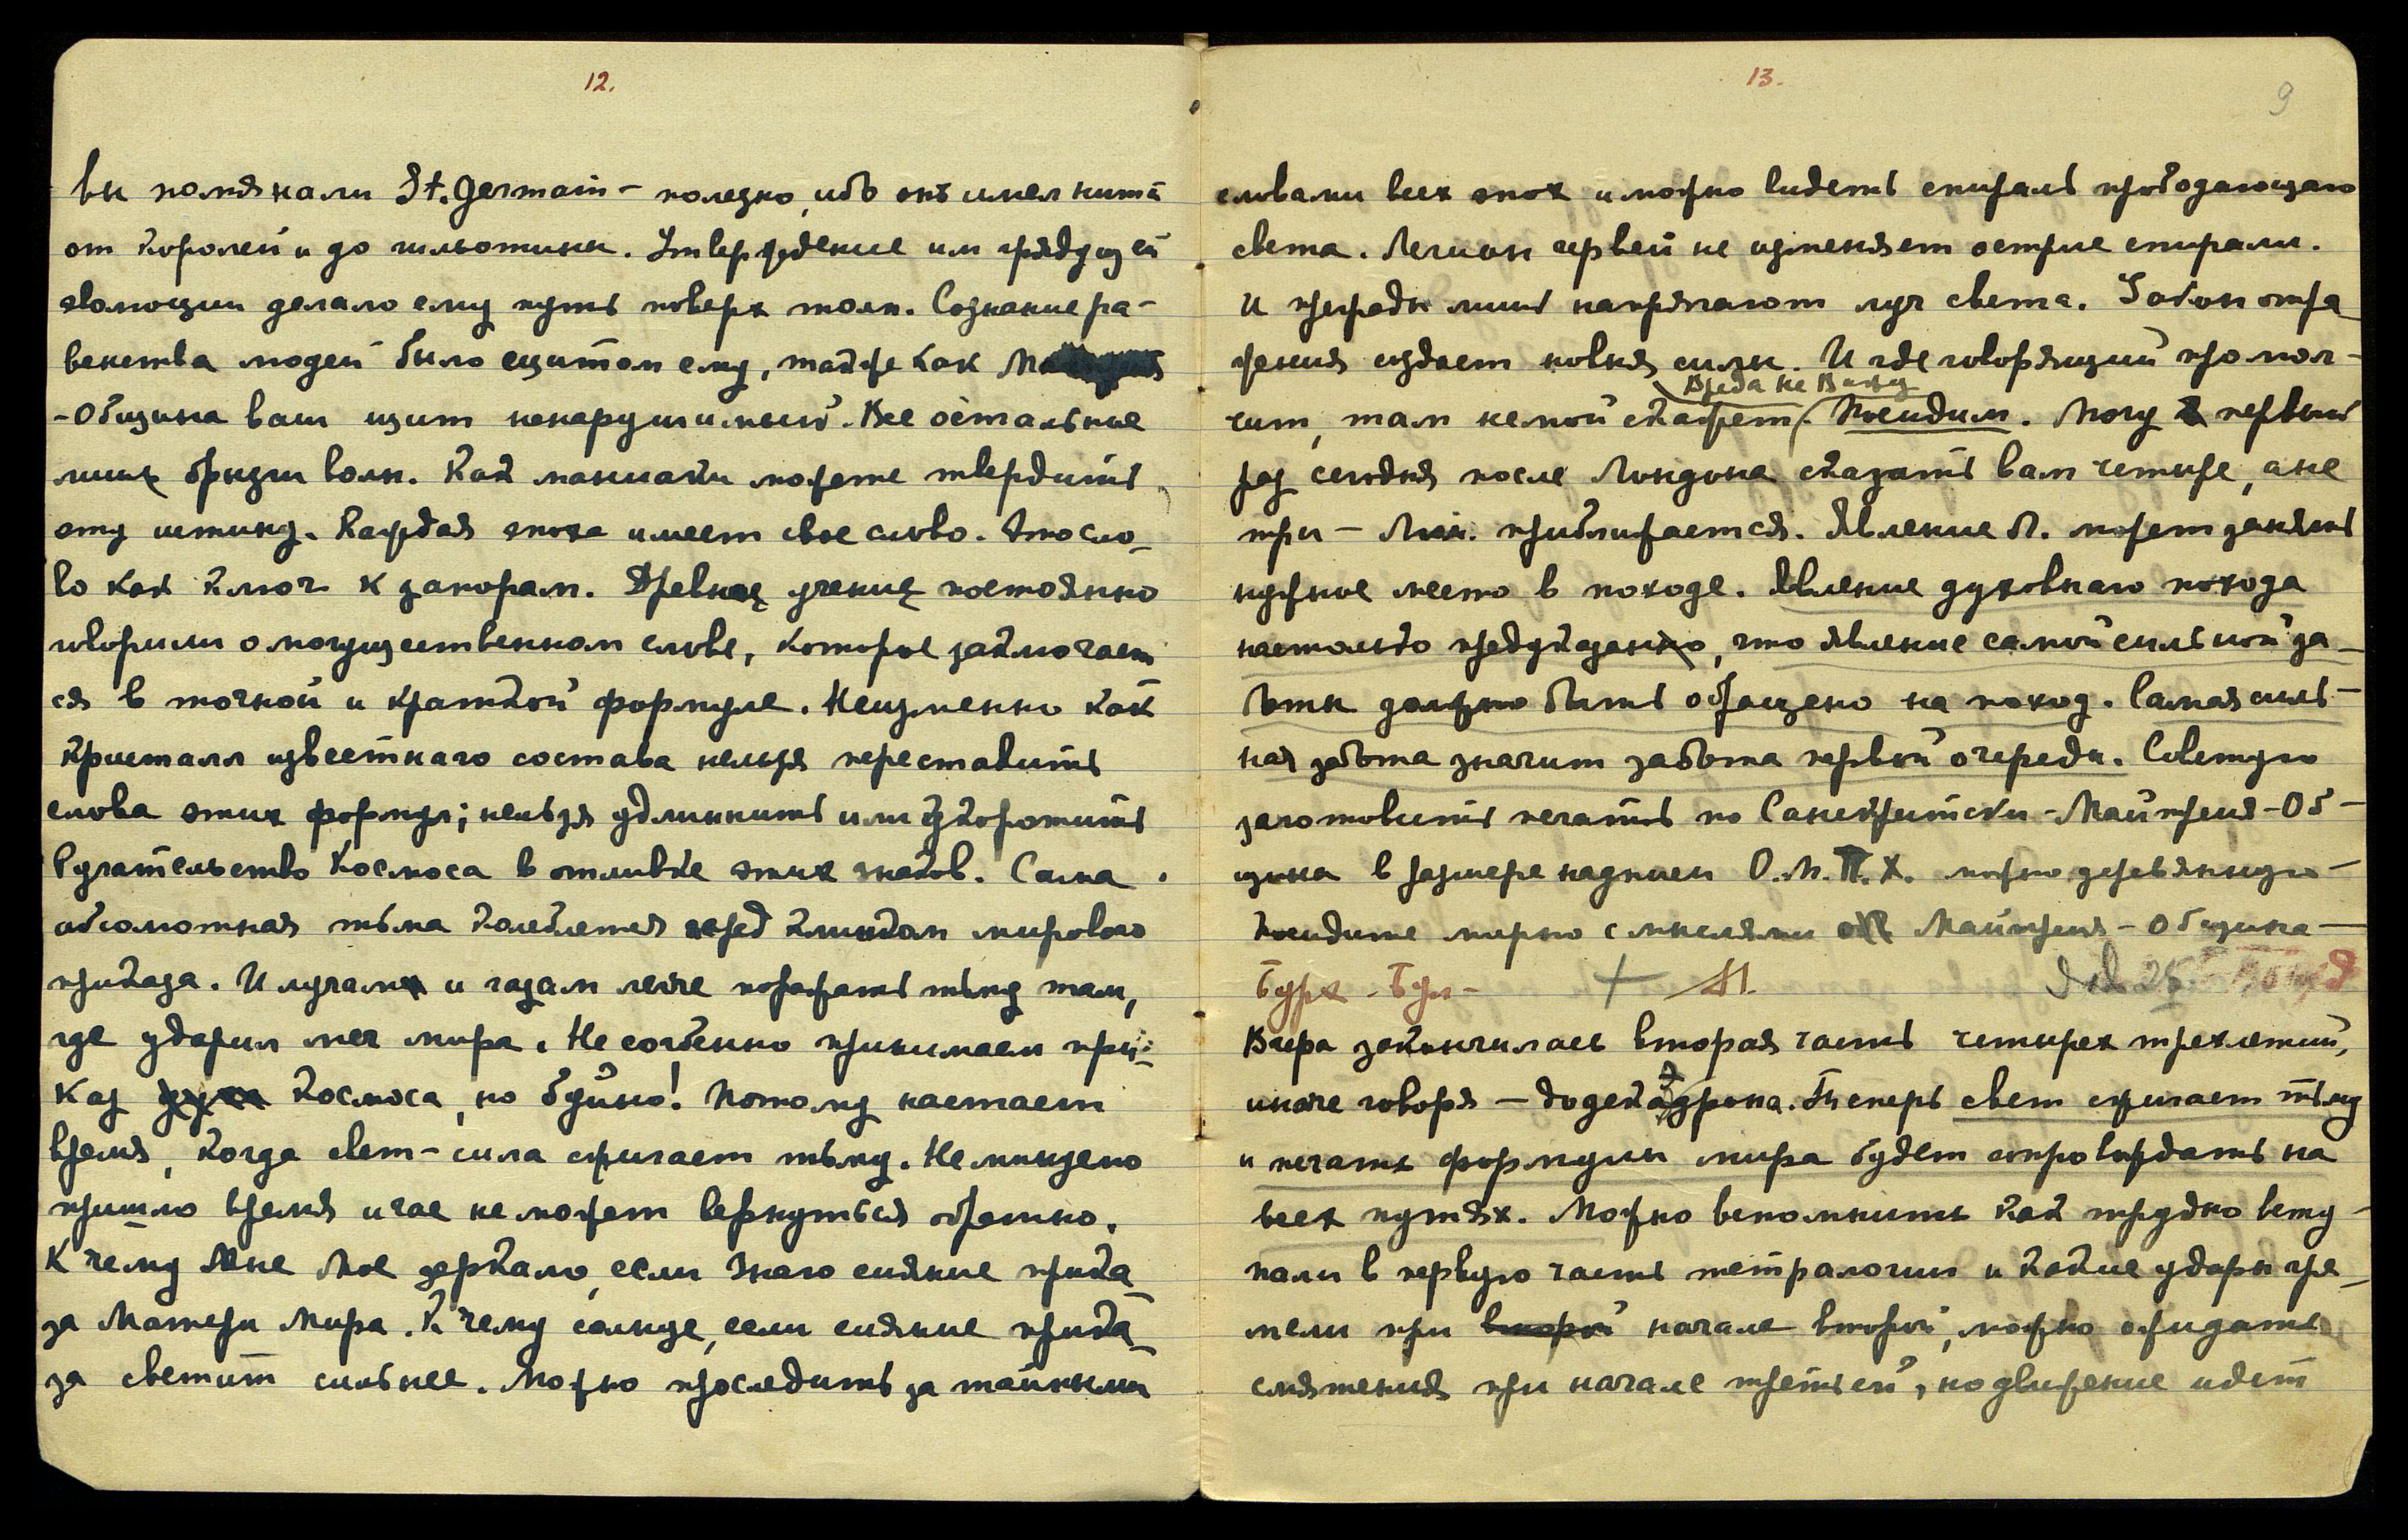 12.
вы помянали St. Germain – полезно, ибо онъ имел нити
от королей и до гильотины. Утверждение им грядущей
эволюции делало ему путь поверх толп. Сознание ра-
венства людей было щитом ему, также как
-Община ваш щит ненарушимый. Все остальные
лишь брызги волн. Как маниаки можете твердить
эту истину. Каждая эпоха имеет свое слово. Это сло-
во как ключ к запорам. Древние учения постоянно
говорили о могущественном слове, которое заключает
ся в точной и краткой формуле. Неизменно как
кристалл известнаго состава нельзя переставить
слова этих формул; нельзя удлиннить или укоротить
Ручательство Космоса в отливке этих знаков. Сама
абсолютная тьма колеблется перед клинком мирового
приказа. И лучами и газам легче поражать тьму там,
где ударил меч мира. Не согбенно принимаем при-
каз духа Космоса, но буйно! Потому настает
время, когда свет-сила сжигает тьму. Неминуемо
пришло время и час не может вернуться обратно.
К чему Мне Мое зеркало, если знаю сияние прика
за Матери Мира. К чему солнце, если сияние прика
за светит сильнее. Можно проследить за тайными
13.
9
словами всех эпох и можно видеть спираль прободающаго
света. Легион червей не изменяет острие спирали.
И преграды лишь напрягают луч света. Закон отра
жения издает новыя силы. И где говорящий промол-
Вреда не Вижу
чит, там немой скажет. Посидим. Могу в первый
раз сегодня после Лондона сказать вам четыре, а не
три – приближается. Явление Л. может занять
нужное место в походе. Явление духовнаго похода
настолько предуказанно, что явление самой сильной за-
боты должно быть обращено на поход. Самая силь-
ная забота значит забота первой очереди. Советую
заготовить печать по Санскритски – Майтрейя-Об-
щина в размере надписи можно деревянную –
Посидите мирно с мыслями Майтрейя – Община –
Бурх – Бул –
Вчера закончилась вторая часть четырех трехлетий,
иначе говоря – додекаэдрона. Теперь свет сжигает тьму
и печать формулы мира будет сопровождать на
всех путях. Можно вспомнить как трудно всту-
пали в первую часть тетралогии и какие удары гре-
мели при второй начале второй, можно ожидать
смятения при начале третьей, но движение идет